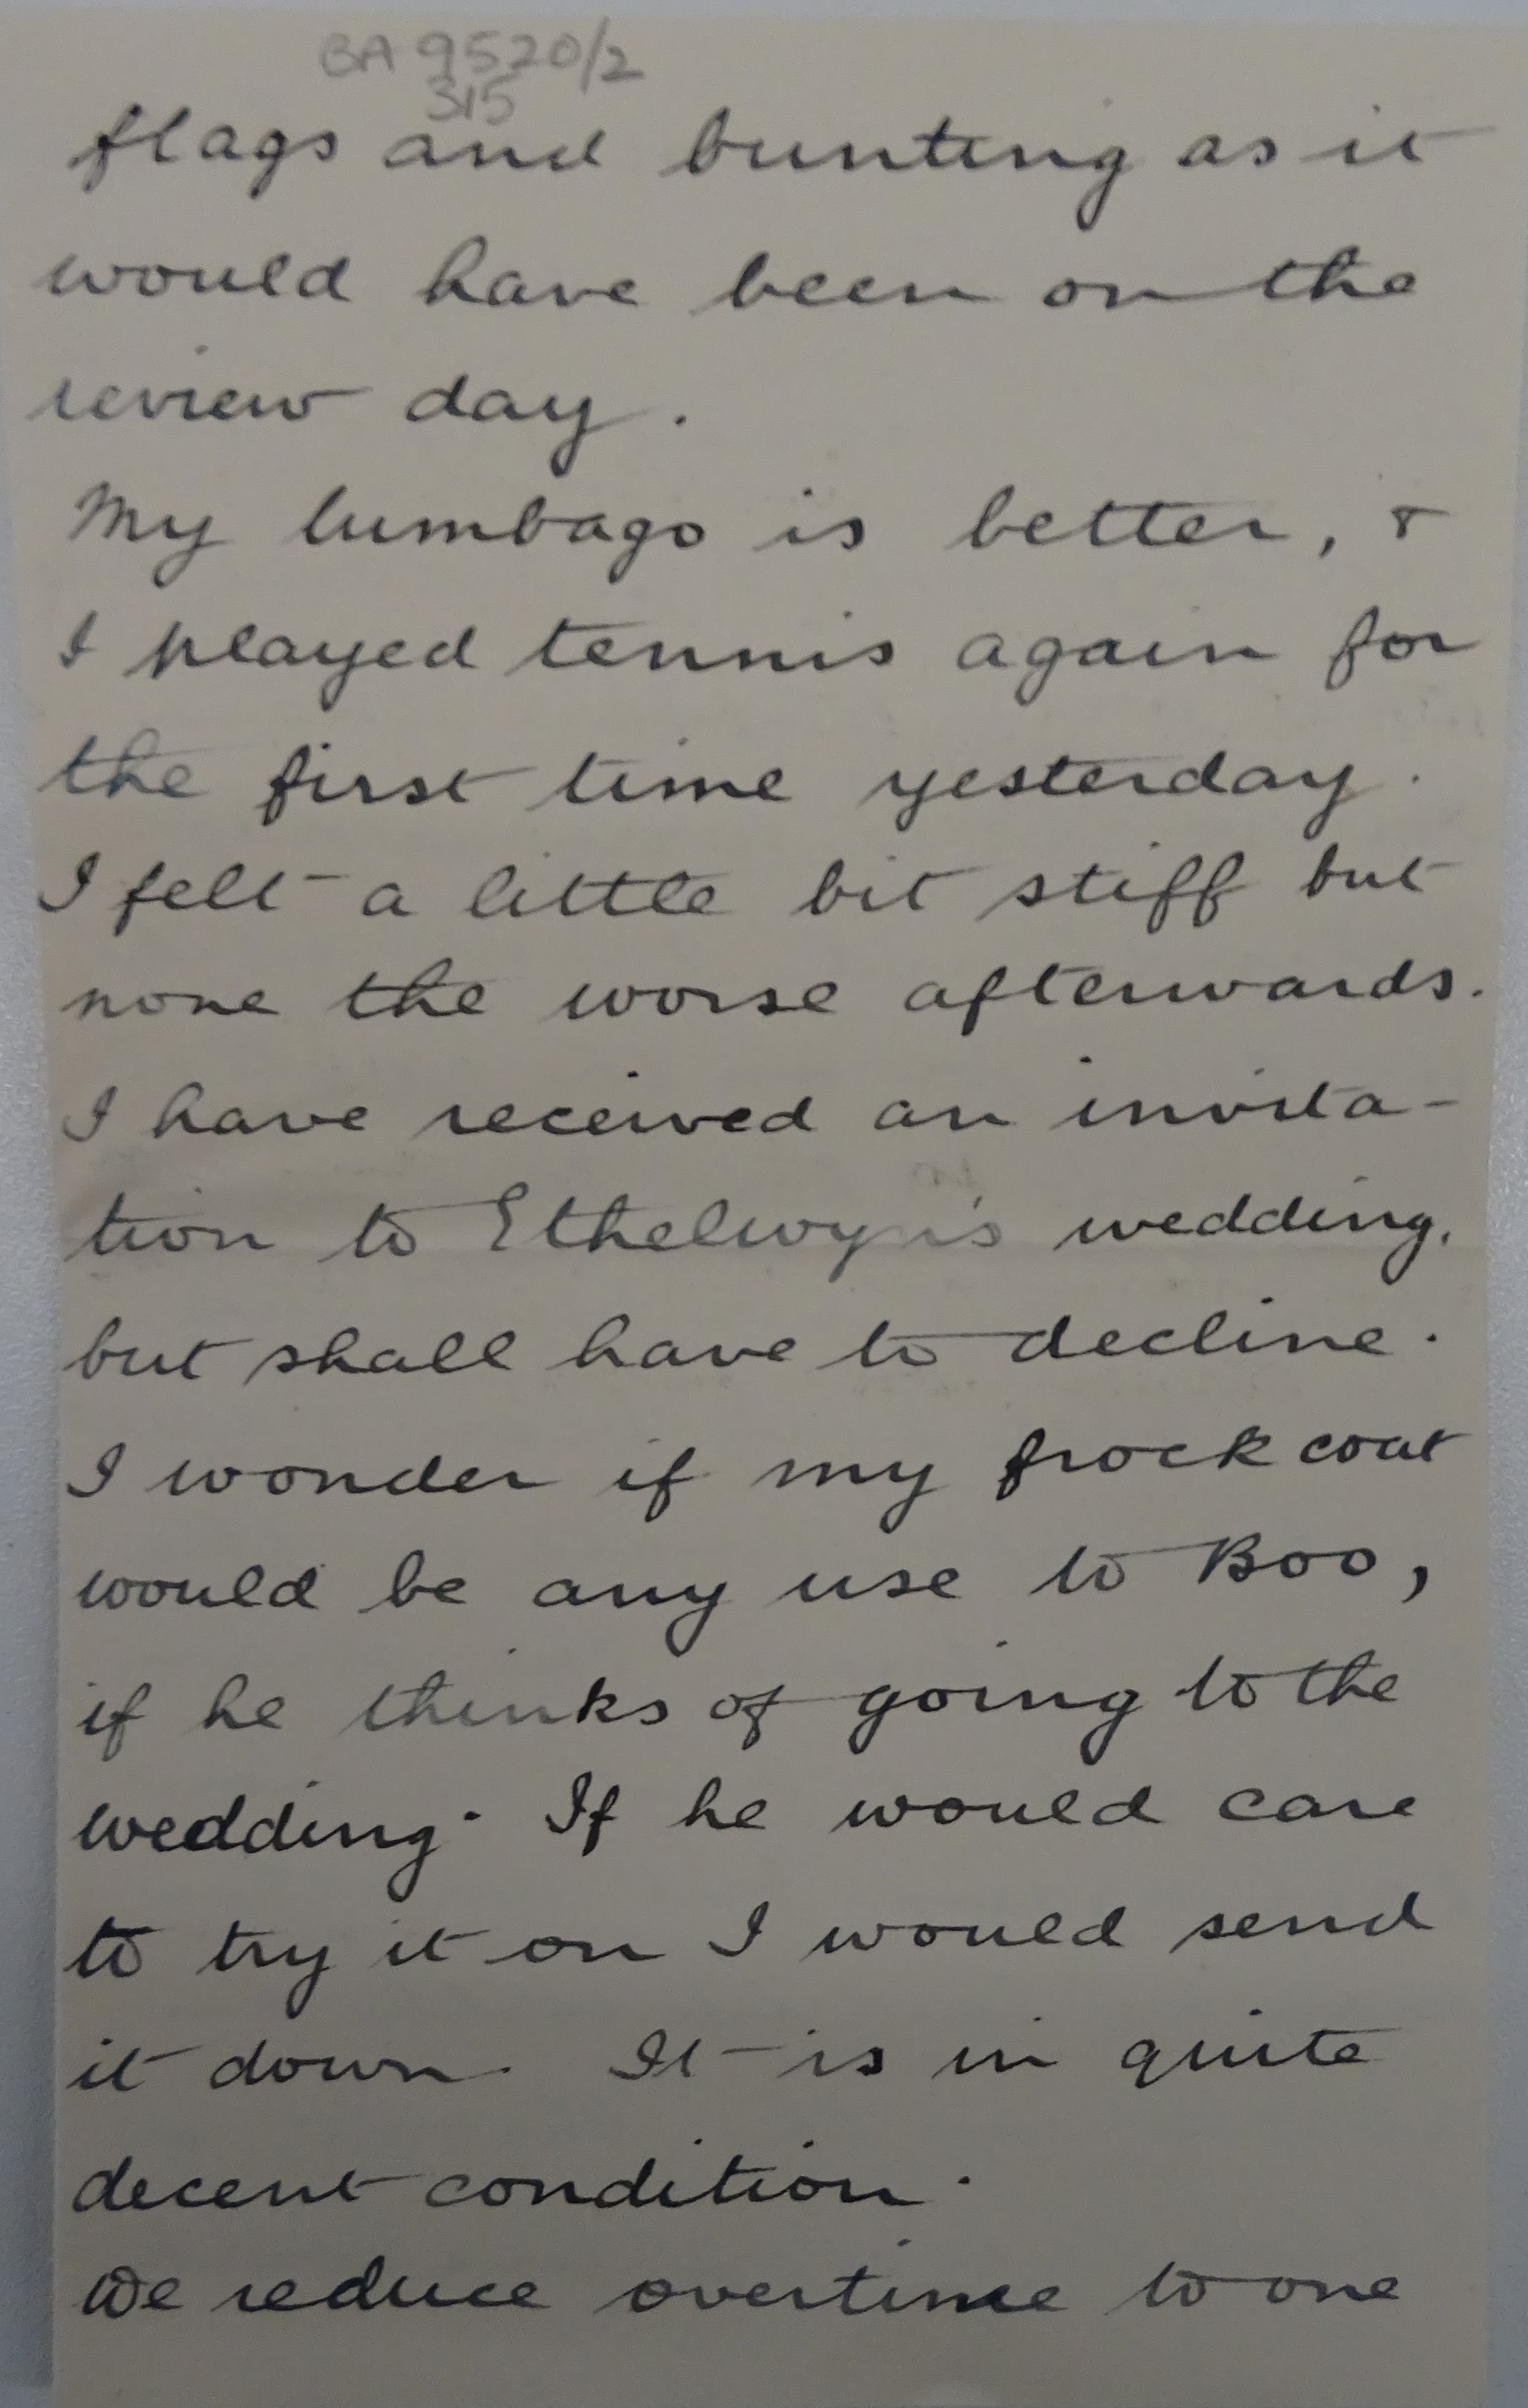 BA 9520/2
315
flags and bunting as it
would have been on the
review day.
My lumbago is better, &
I played tennis again for
the first time yesterday.
I felt a little bit stiff but
none the worse afterwards.
I have received an invita-
tion to Ethelwyn's wedding,
but shall have to decline.
I wonder if my frock coat
would be any use to Boo,
if he thinks of going to the
wedding. If he would care
to try it on I would send
it down. It is in quite
decent condition.
We reduce overtime to one